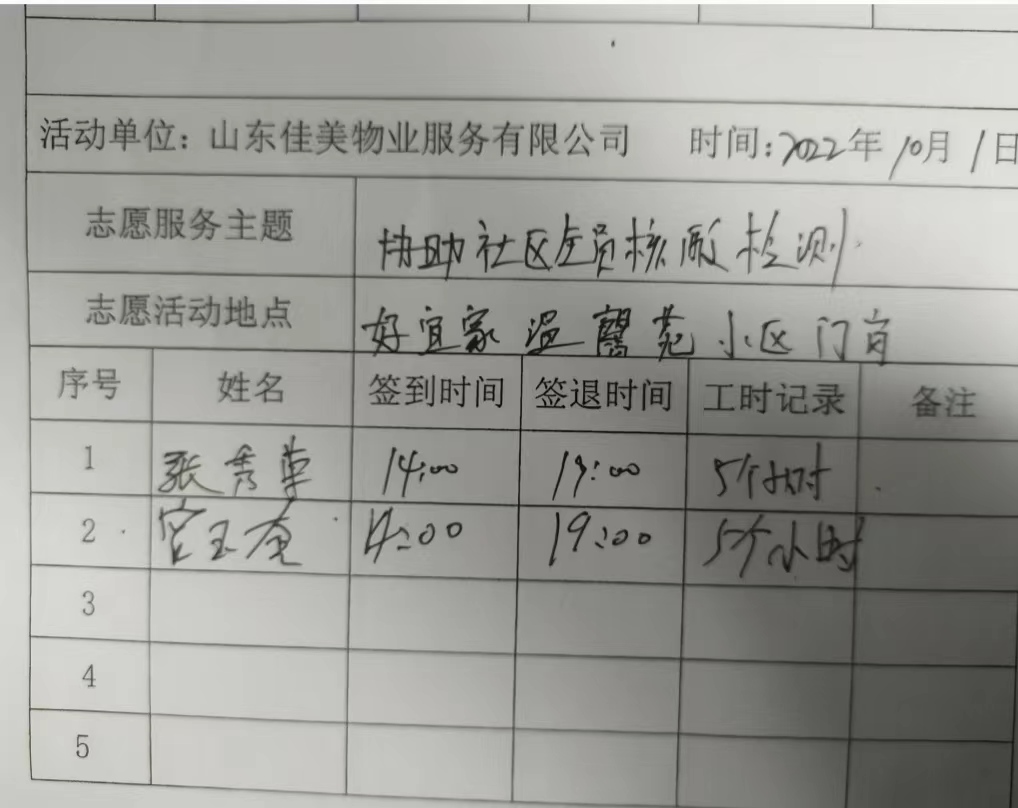 活动单位：山东佳美物业服务有限公司 时间：2022年10月1日
志愿服务主题 协助社区全员核酸检测
志愿活动地点 好宜家温馨苑小区门岗
序号 姓名 签到时间 签退时间 工时记录 备注
1 张秀 14:00 19:00 5个小时
2 宫玉 14:00 19:00 5个小时
3
4
5